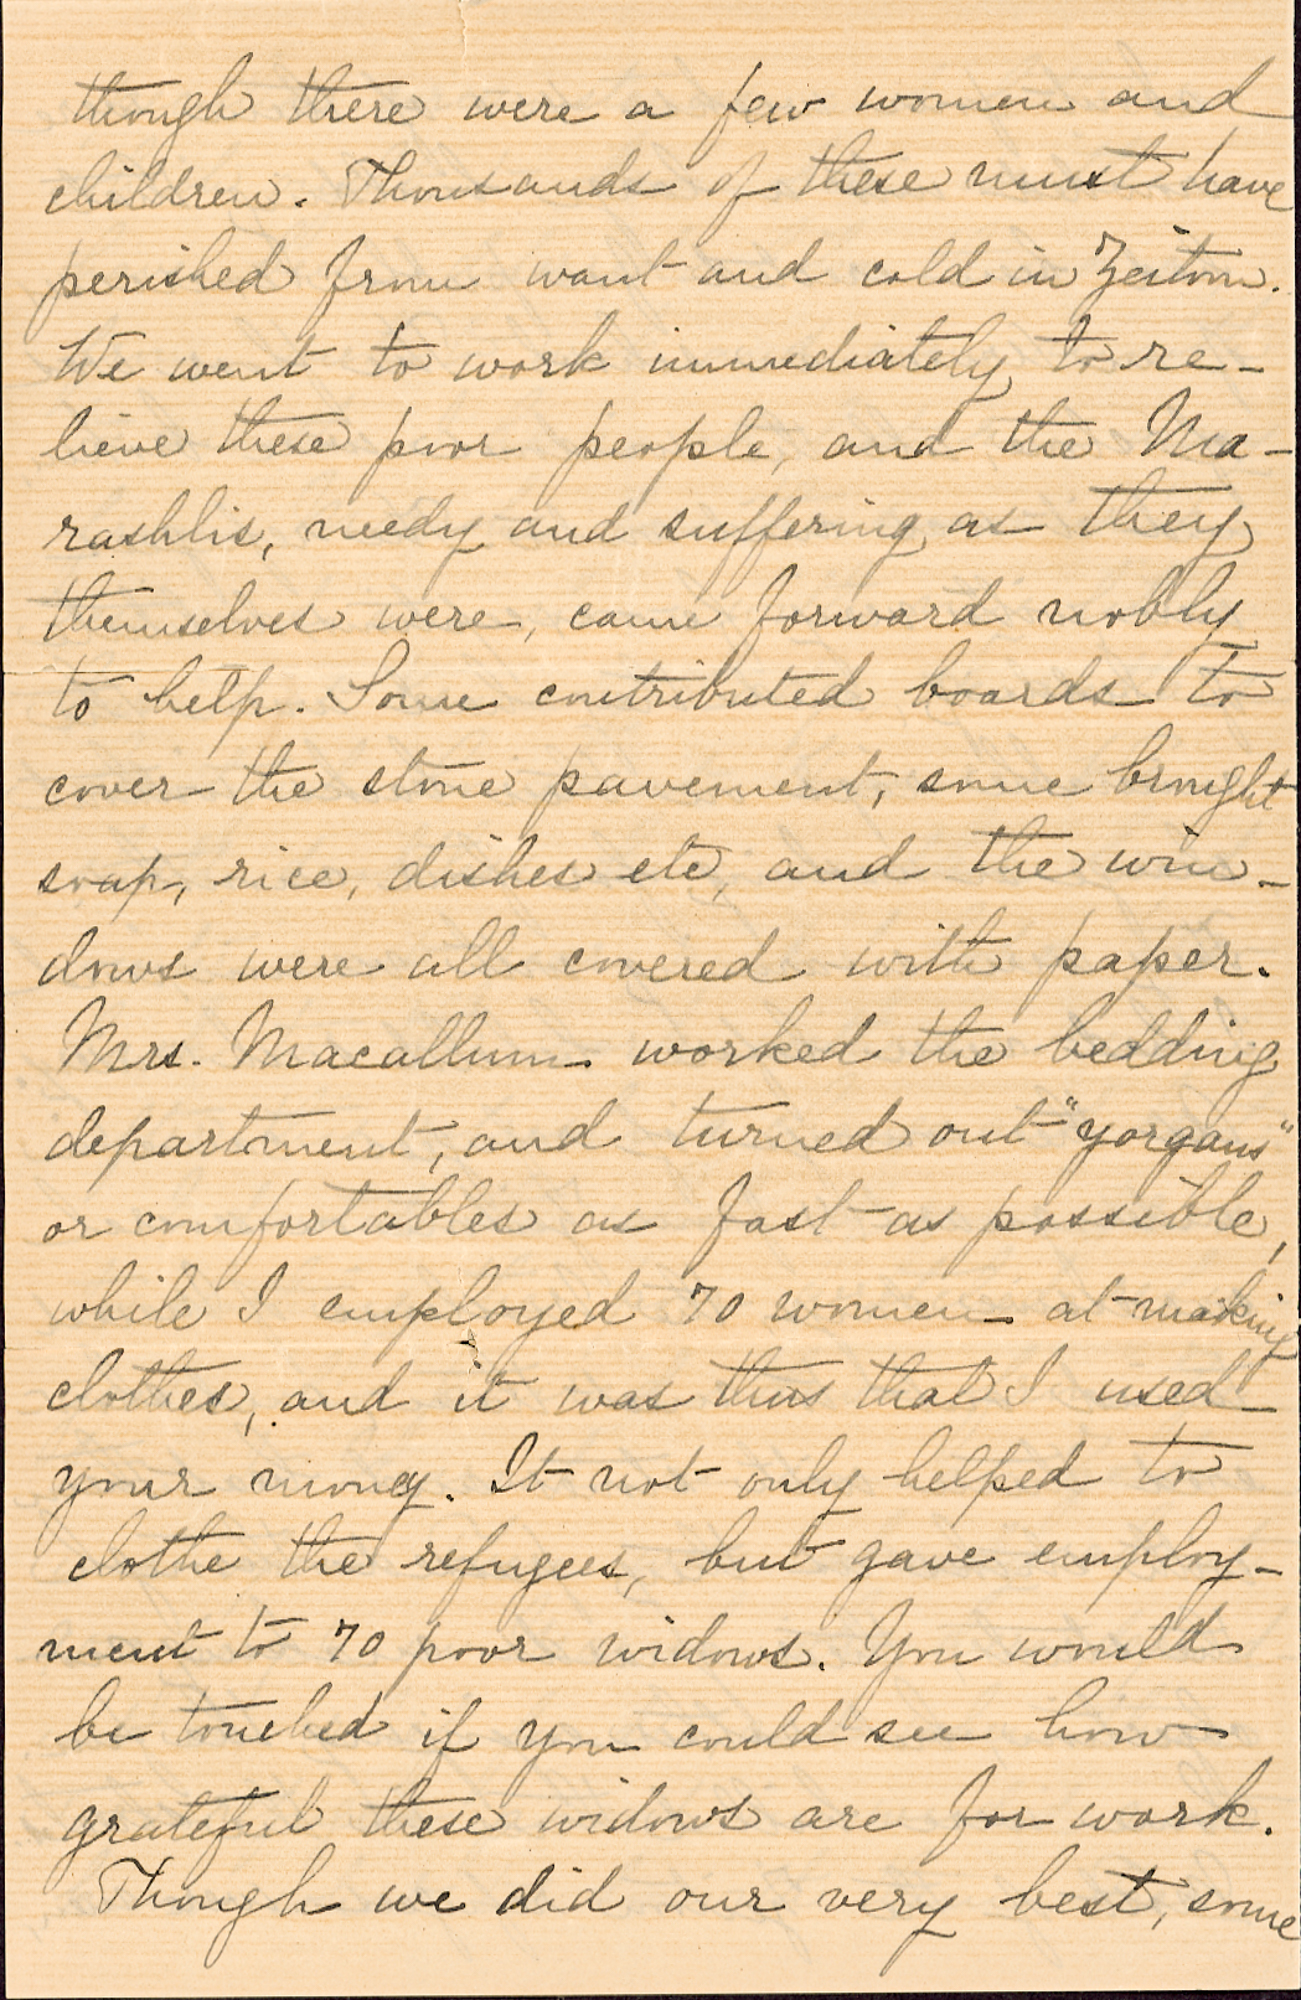 though there were a few women and
children. Thousands of these must have
perished from want and cold in Zeitoon.
We went to work immediately to re-
lieve these poor people, and the Ma-
rashlis, needy and suffering as they
themselves were, came forward nobly
to help. Some contributed boards to
cover the stone pavement, some brought
soap, rice, dishes etc, and the win-
dows were all covered with paper.
Mrs. Macallum worked the bedding
department, and turned out "yorgans"
or comfortables as fast as possible,
while I employed 70 women at making
clothes, and it was thus that I used
your money. It not only helped to
clothe the refugees, but gave employ-
ment to 70 poor widows. You would
be touched if you could see how
grateful these widows are for work.
Though we did our very best, some